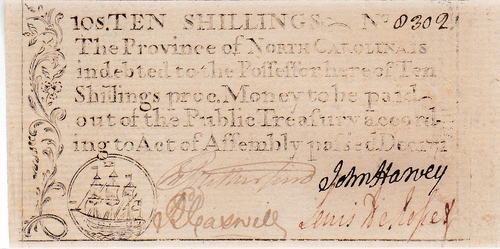 10s. TEN SHILLINGS No. 8302
The Province of NORTH CAROLINA is
indebted to the Poſſeſſor hereof Ten
Shillings proc. Money to be paid
out of the Public Treaſury accord-
ing to Act of Aſſembly paſſed Decm
John Harvey
Lewis De